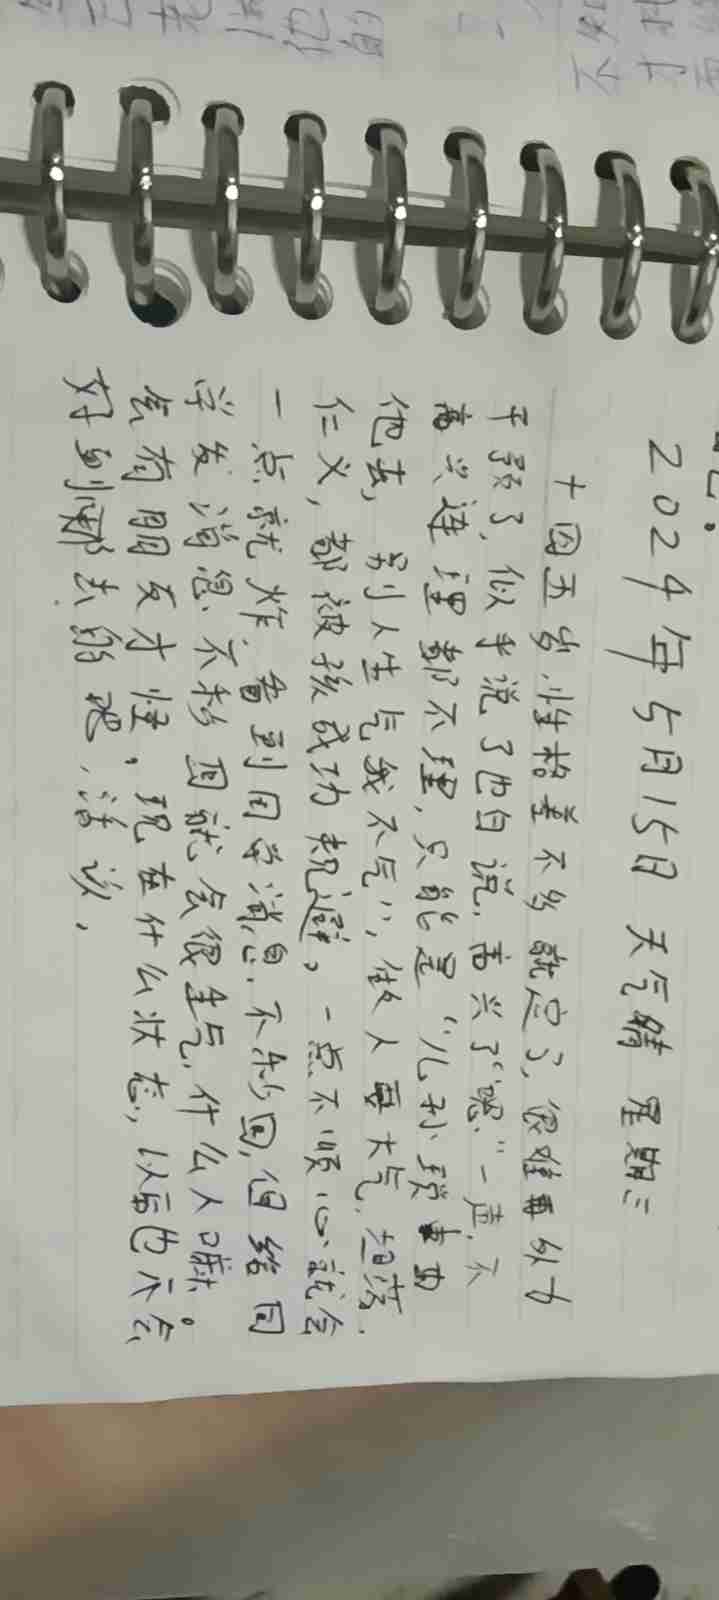 2024年5月15日 天气晴 星期三
十四五岁,性格差不多就定了,很难再外力
干预了,似乎说了也白说,高兴了"嗯"一声,不
高兴连理都不理,只能是"儿孙琐事由
他去,别人生气我不气",做人要大气,坦荡.
仁义,都被孩成功规避,一点不顺心就会
一点就炸,看到同学消息,不秒回,但给同
学发消息不秒回就会很生气,什么人嘛。
怎有朋友才怪,现在什么状态,以后也不会
好到哪去的吧,活该,